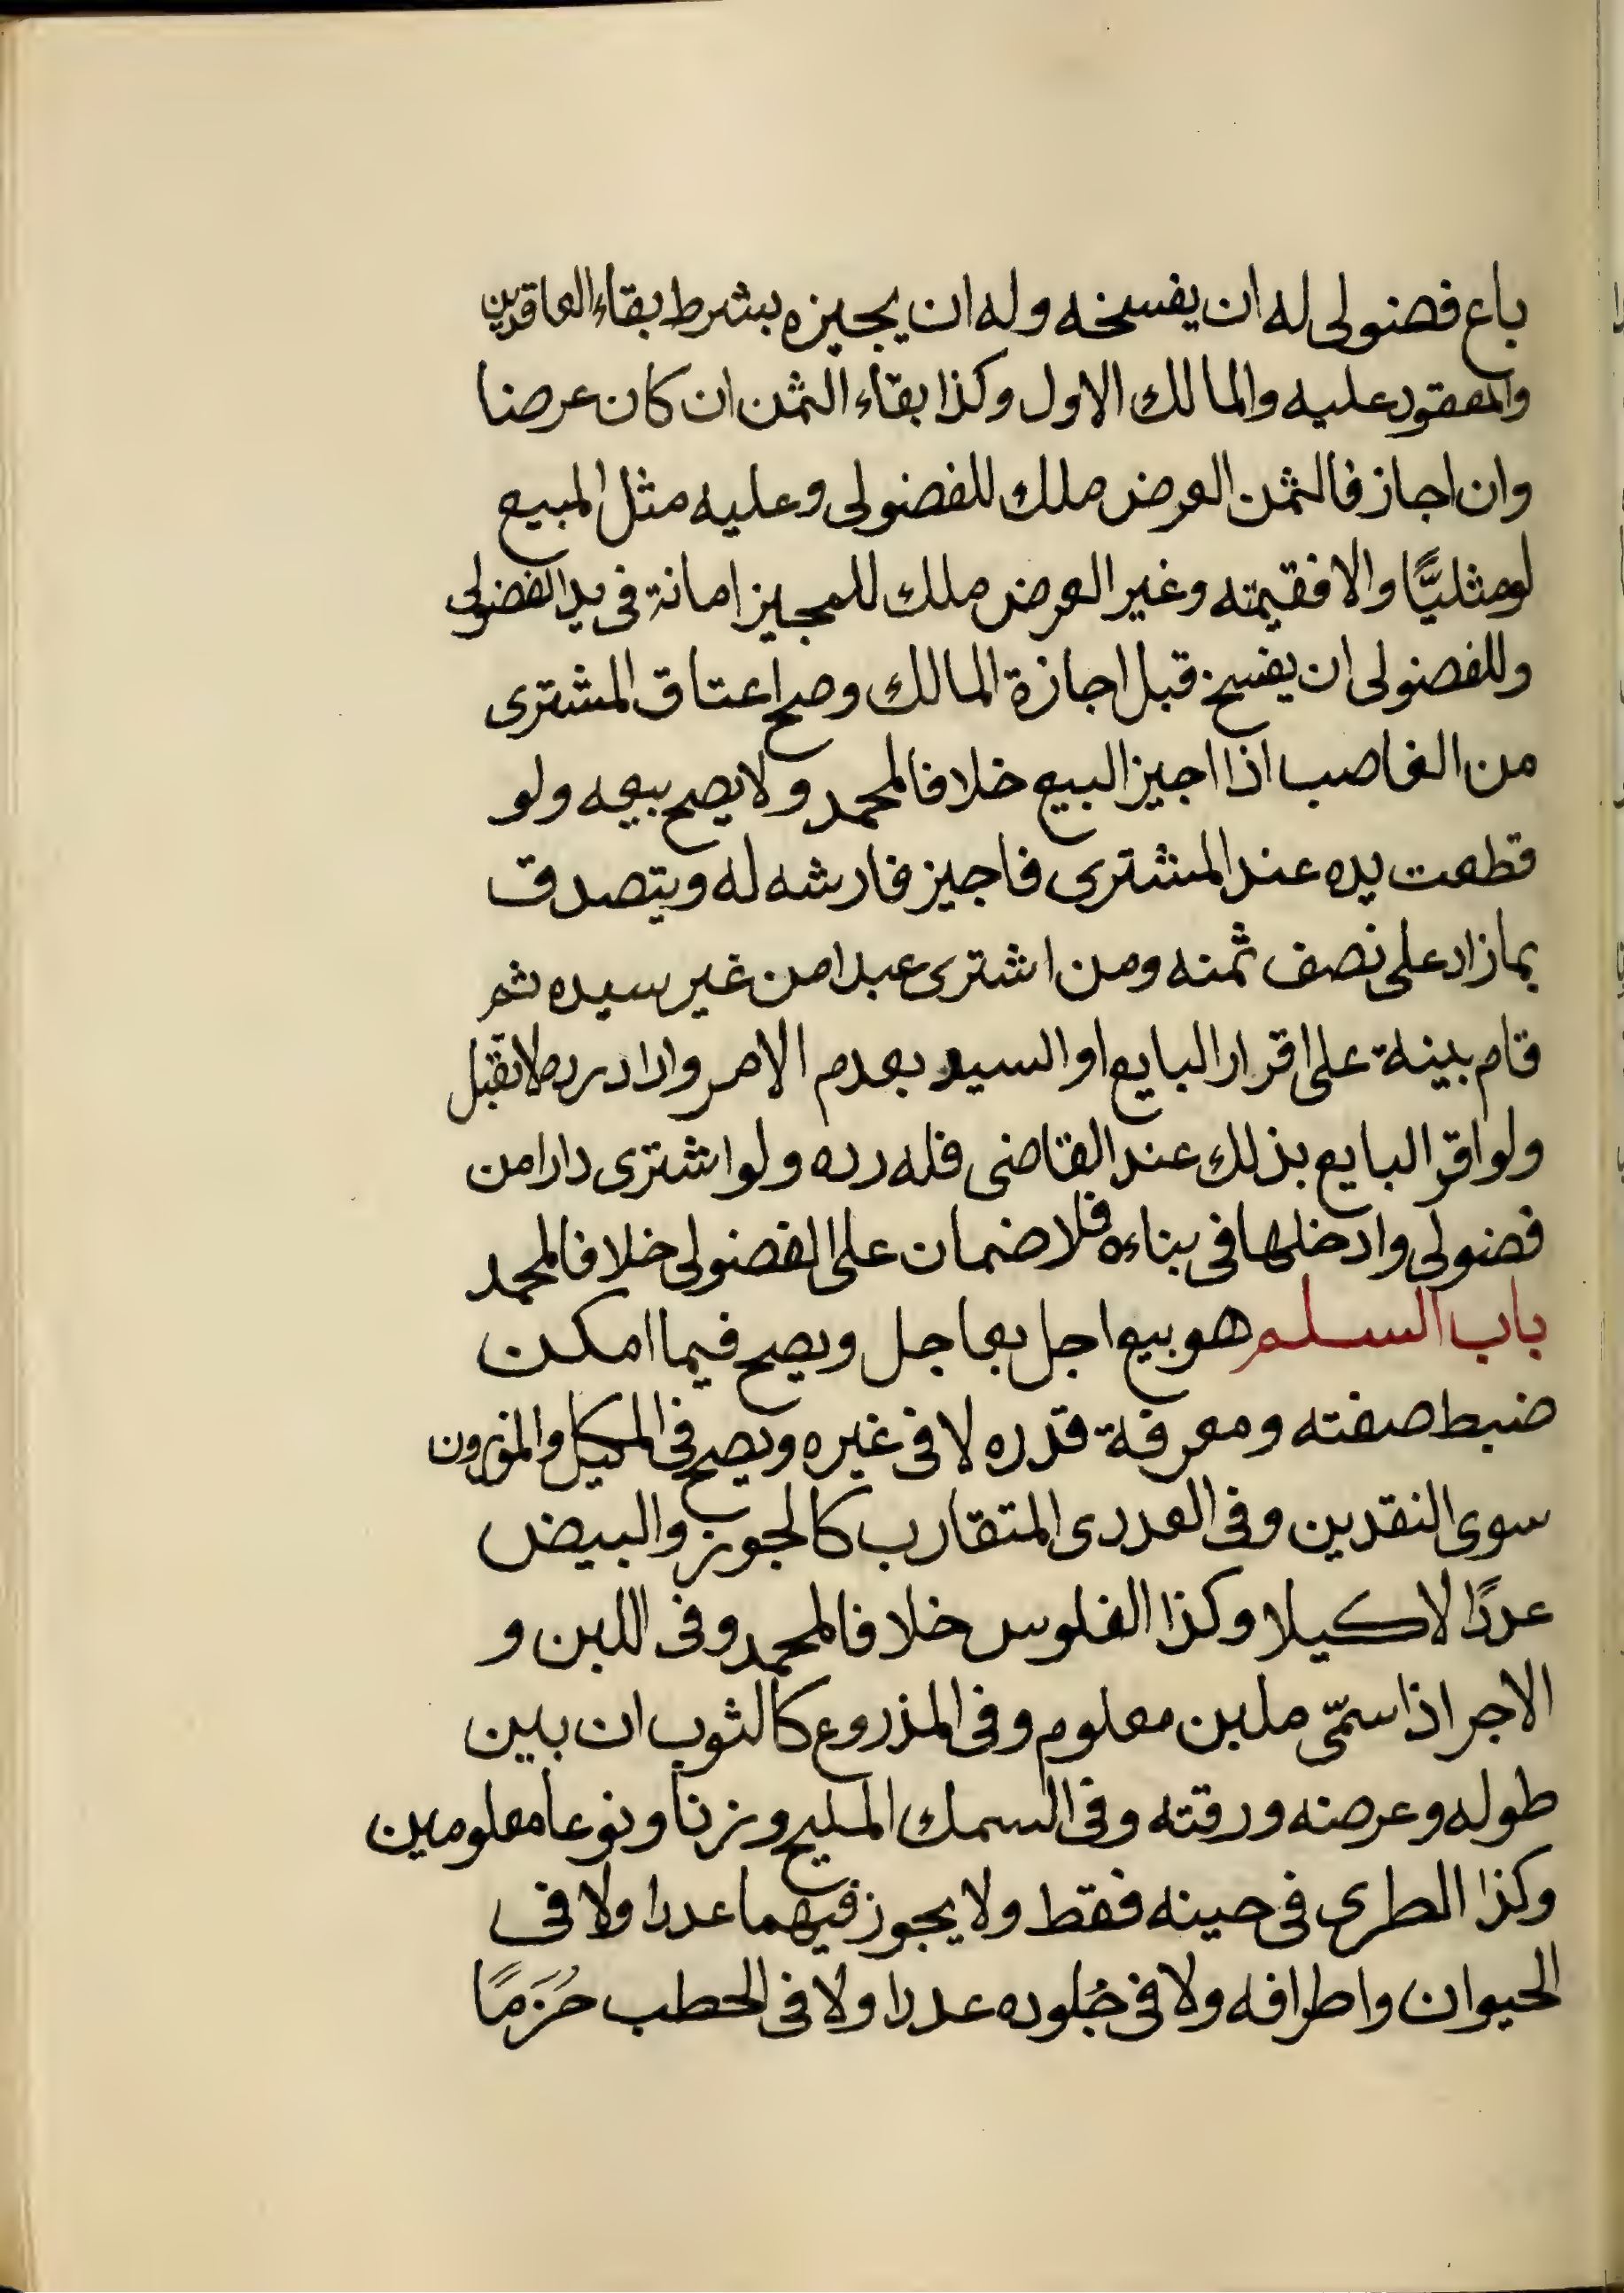 باع فضولى له ان يفسخه وله ان يجيزه بشرط بقاء العاقدين
والمعقود عليه والمالك الاول وكذا بقاء الثمن ان كان عرضا
وان اجاز فالثمن العرض ملك للفضولى وعليه مثل المبيع
لو مثليًّا والا فقيمته وغير العرض ملك للمجيز امانة فى يد الفضولى
وللفضولى ان يفسخ قبل اجازة المالك وصح اعتاق المشترى
من الغاصب اذا اجيز البيع خلافا لمحمد ولا يصح بيعه ولو
قطعت يده عند المشترى فاجيز فارشه له ويتصدق
بما زاد على نصف ثمنه ومن اشترى عبدا من غير سيده ثم
قام بينة على اقرار البايع او السيد بعدم الامر واراد رده لا تقبل
ولو اقر البايع بذلك عند القاضى فله رده ولو اشترى دارا من
فضولى وادخلها فى بناءه فلا ضمان على الفضولى خلافا لمحمد
باب السلم هو بيع اجل بعاجل ويصح فيما امكن
ضبط صفته ومعرفة قدره لا فى غيره ويصح فى المكيل والموزون
سوى النقدين وفى العددى المتقارب كالجوز والبيض
عددًا لا كيلا وكذا الفلوس خلافا لمحمد وفى اللبن و
الاجر اذا سمّى ملبن معلوم وفى المذروع كالثوب ان بين
طوله وعرضه ورقته وفى السمك المليح وزنا ونوعا معلومين
وكذا الطرى فى حينه فقط ولا يجوز فيهما عددا ولا فى
الحيوان واطرافه ولا فى جُلوده عددا ولا فى الحطب حُزَمًا